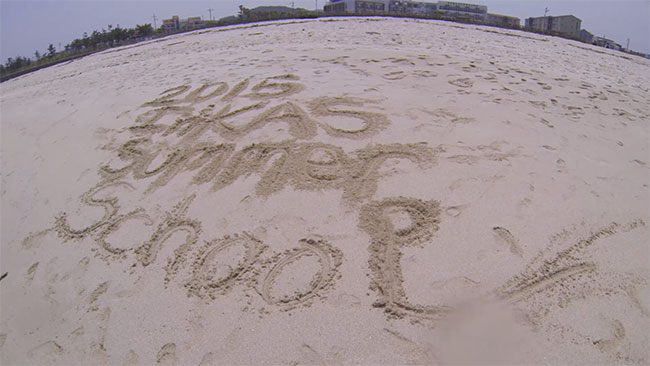 2015
IKAS
Summer
School